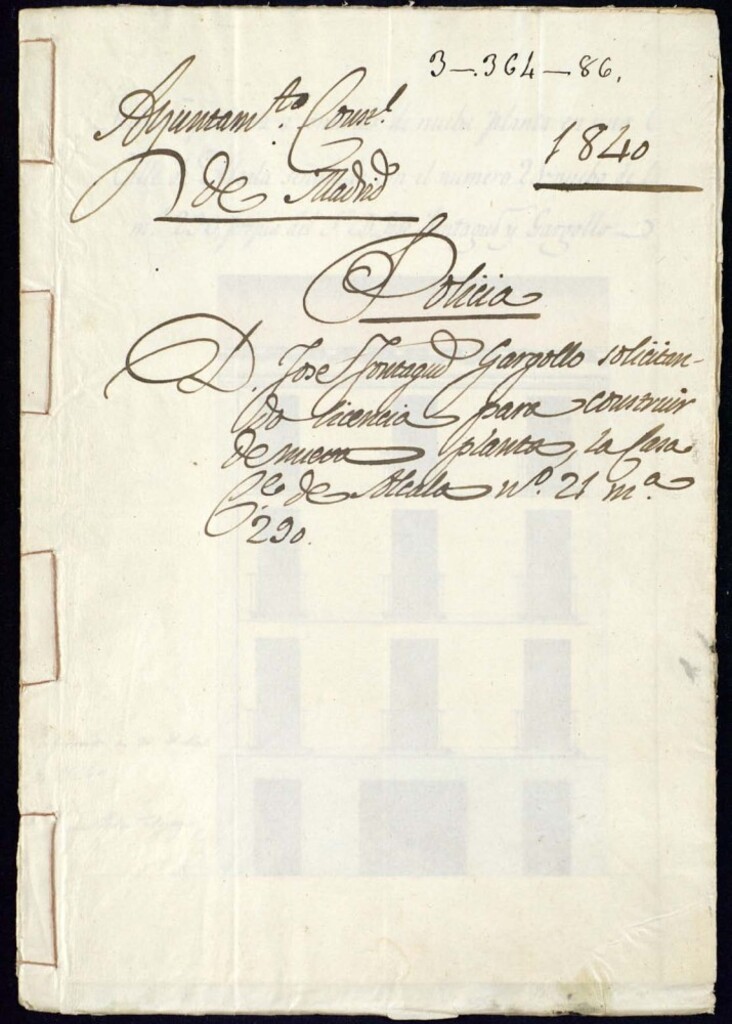 3-364-86.
Ayuntam.to Conn.l
de Madrid
1840
Policia
D. Jose Fontagud Gargollo solicitan-
do licencia para construir
de nueva planta, la Casa
C.e de Alcala nº. 21 m.a
290.